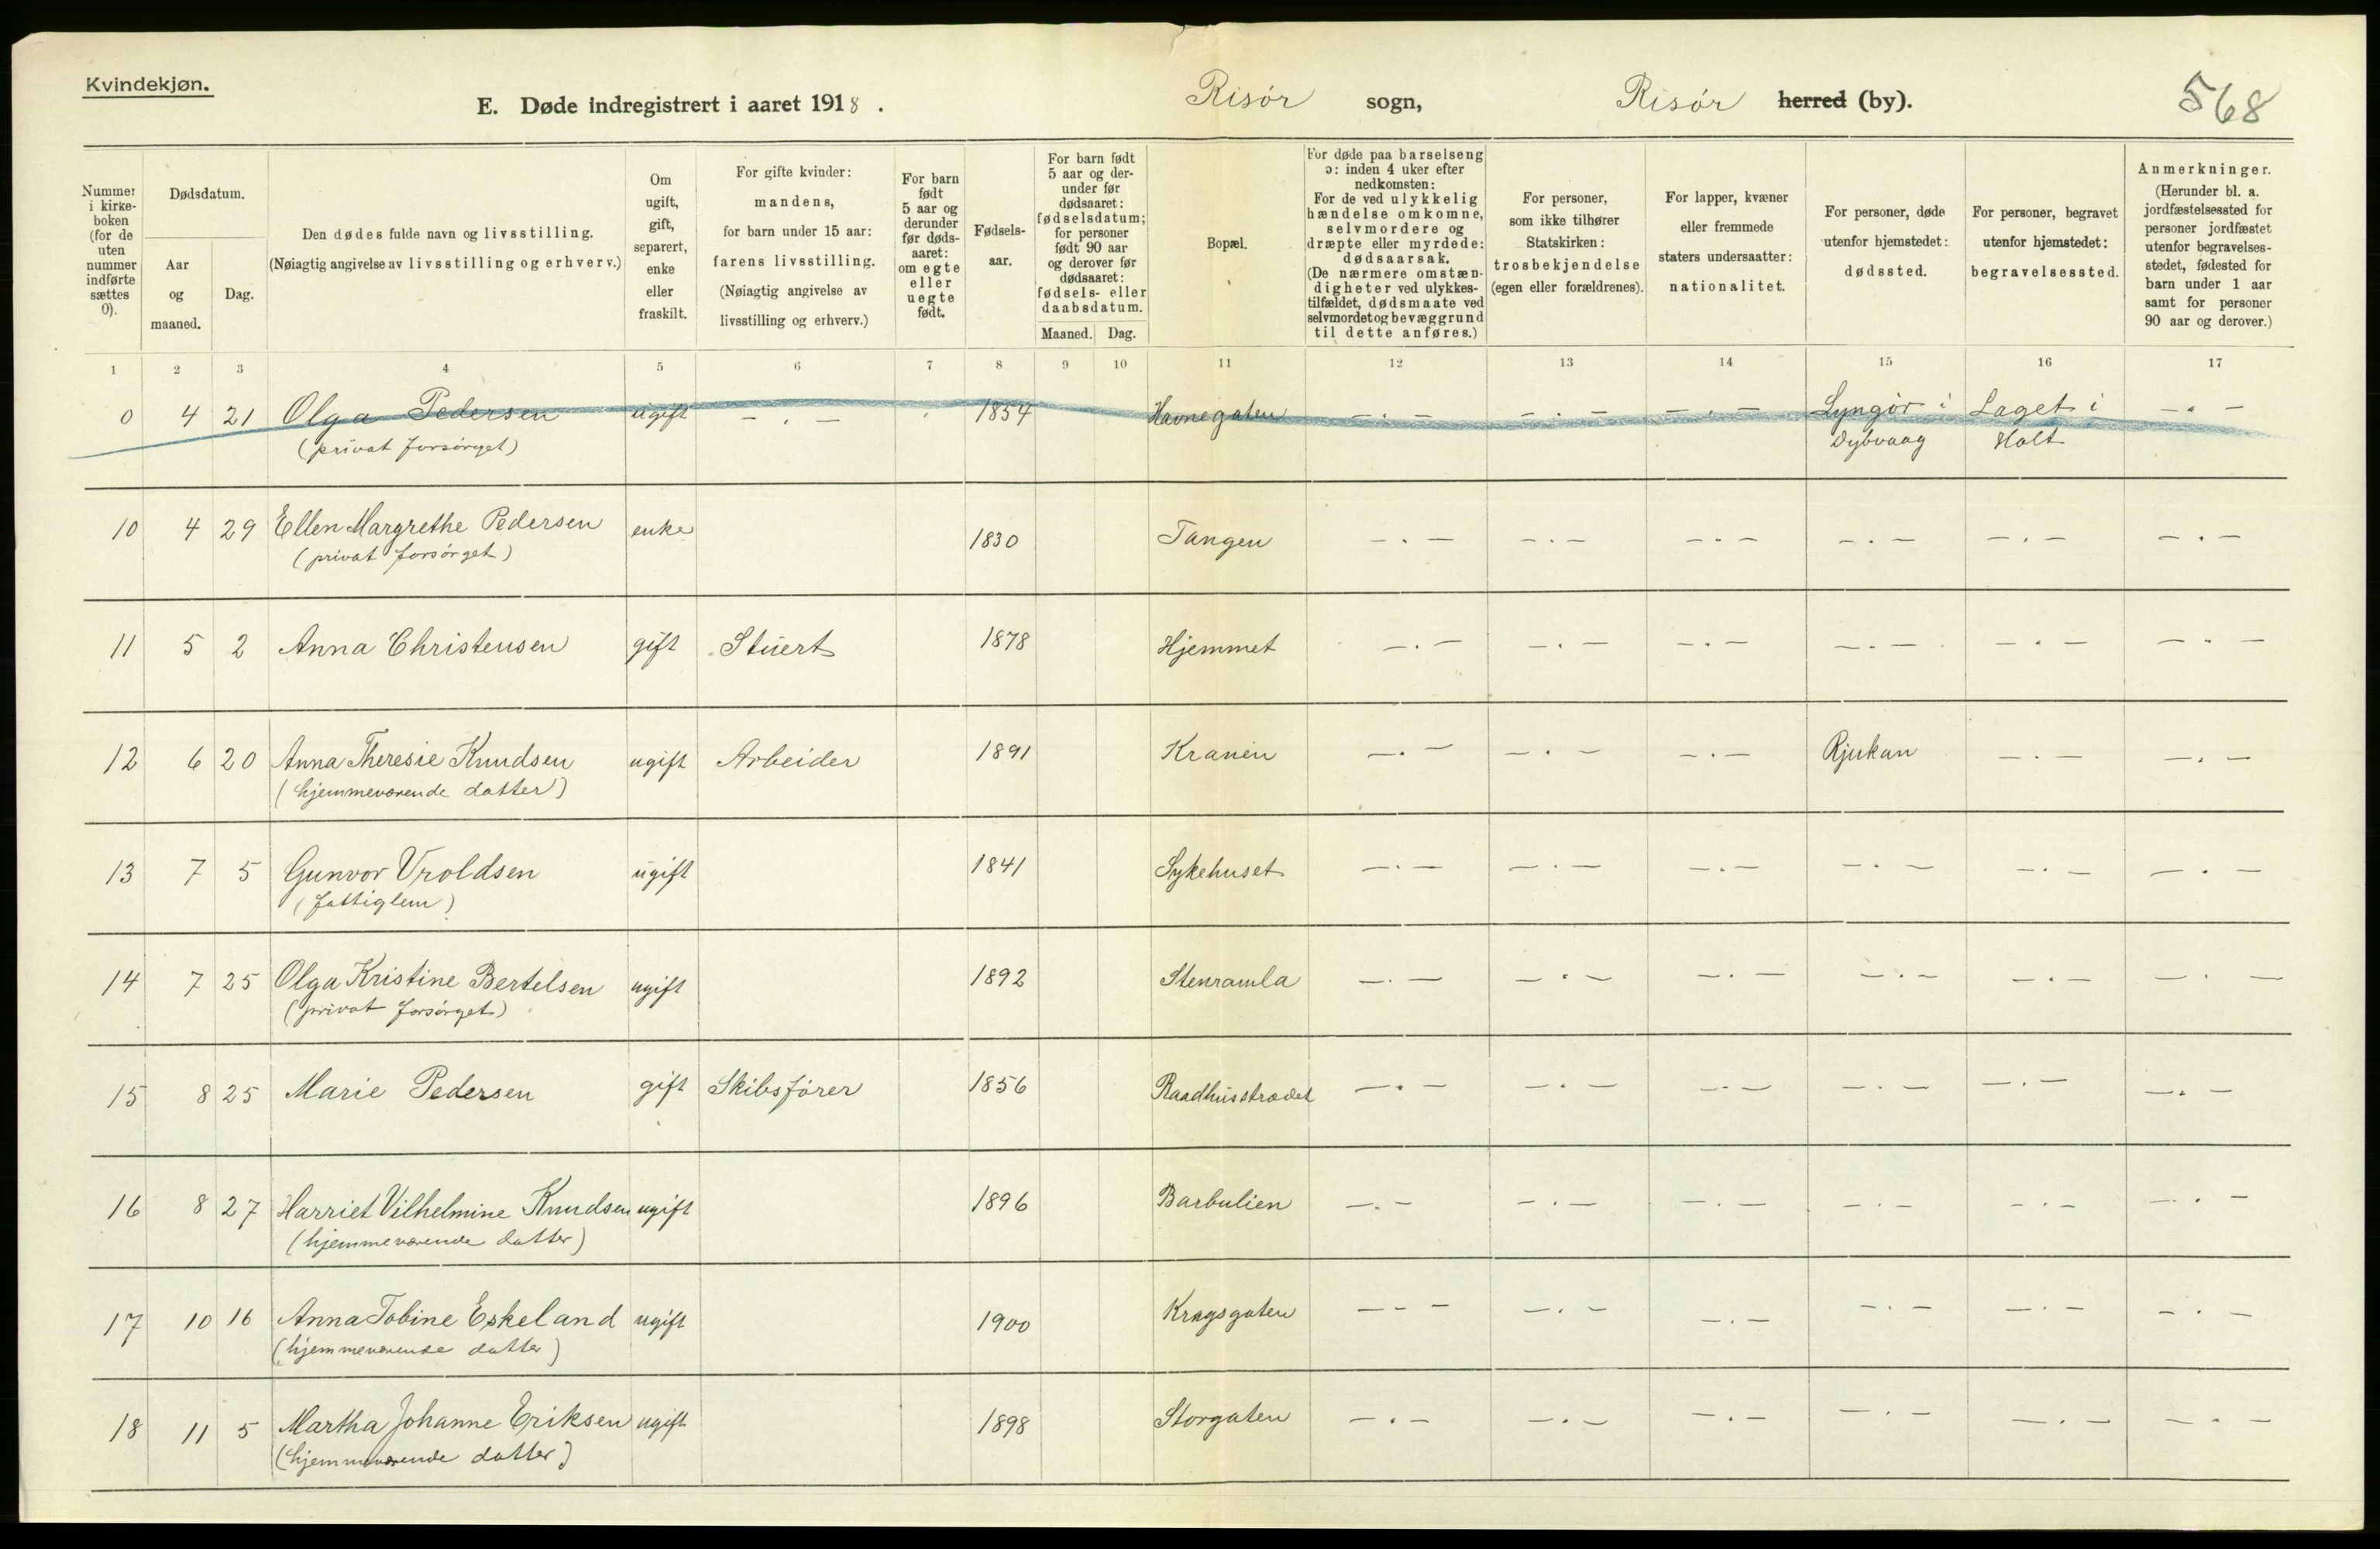 Kvindekjøn.
E. Døde indregistrert i aaret 1918.
Risör sogn,
Risör herred (by).
568
Nummer i kirkeboken (for de uten nummer indførte sættes 0).
Dødsdatum.
Aar og maaned.
Dag.
Den dødes fulde navn og livsstilling.
(Nøiagtig angivelse av livsstilling og erhverv.)
Om ugift, gift, separert, enke eller fraskilt.
For gifte kvinder: mandens, for barn under 15 aar: farens livsstilling.
(Nøiagtig angivelse av livsstilling og erhverv.)
For barn født 5 aar og derunder før dødsaaret: om egte eller uegte født.
Fødselsaar.
For barn født 5 aar og derunder før dødsaaret: fødselsdatum; for personer født 90 aar og derover før dødsaaret: fødsels- eller daabsdatum.
Maaned. Dag.
Bopæl.
For døde paa barselseng ɔ: inden 4 uker efter nedkomsten: For de ved ulykkelig hændelse omkomne, selvmordere og dræpte eller myrdede: dødsaarsak.
(De nærmere omstændigheter ved ulykkestilfældet, dødsmaate ved selvmordet og bevæggrund til dette anføres.)
For personer, som ikke tilhører Statskirken: trosbekjendelse (egen eller forældrenes).
For lapper, kvæner eller fremmede staters undersaatter: nationalitet.
For personer, døde utenfor hjemstedet: dødssted.
For personer, begravet utenfor hjemstedet: begravelsessted.
Anmerkninger.
(Herunder bl. a. jordfæstelsessted for personer jordfæstet utenfor begravelsesstedet, fødested for barn under 1 aar samt for personer 90 aar og derover.)
1 2 3 4 5 6 7 8 9 10 11 12 13 14 15 16 17
0 4 21 Olga Pedersen ugift — . — 1854 Havnegaten — . — — . — — . — Lyngör i Laget i — . —
(privat forsörget) Dybvaag Holt
10 4 29 Ellen Margrethe Pedersen enke 1830 Tangen — . — — . — — . — — . — — . — — . —
(privat forsörget)
11 5 2 Anna Christensen gift Stuert 1878 Hjemmet — . — — . — — . — — . — — . — — . —
12 6 20 Anna Theresie Knudsen ugift Arbeider 1891 Kranen — . — — . — — . — Rjukan — . — — . —
(hjemmeværende datter)
13 7 5 Gunvor Vroldsen ugift 1841 Sykehuset — . — — . — — . — — . — — . — — . —
(fattiglem)
14 7 25 Olga Kristine Bertelsen ugift 1892 Stenramla — . — — . — — . — — . — — . — — . —
(privat forsörget)
15 8 25 Marie Pedersen gift Skibsförer 1856 Raadhusstrædet — . — — . — — . — — . — — . — — . —
16 8 27 Harriet Vilhelmine Knudsen ugift 1896 Barbulien — . — — . — — . — — . — — . — — . —
(hjemmeværende datter)
17 10 16 Anna Tobine Eskeland ugift 1900 Kragsgaten — . — — . — — . — — . — — . — — . —
(hjemmeværende datter)
18 11 5 Martha Johanne Eriksen ugift 1898 Storgaten — . — — . — — . — — . — — . — — . —
(hjemmeværende datter)